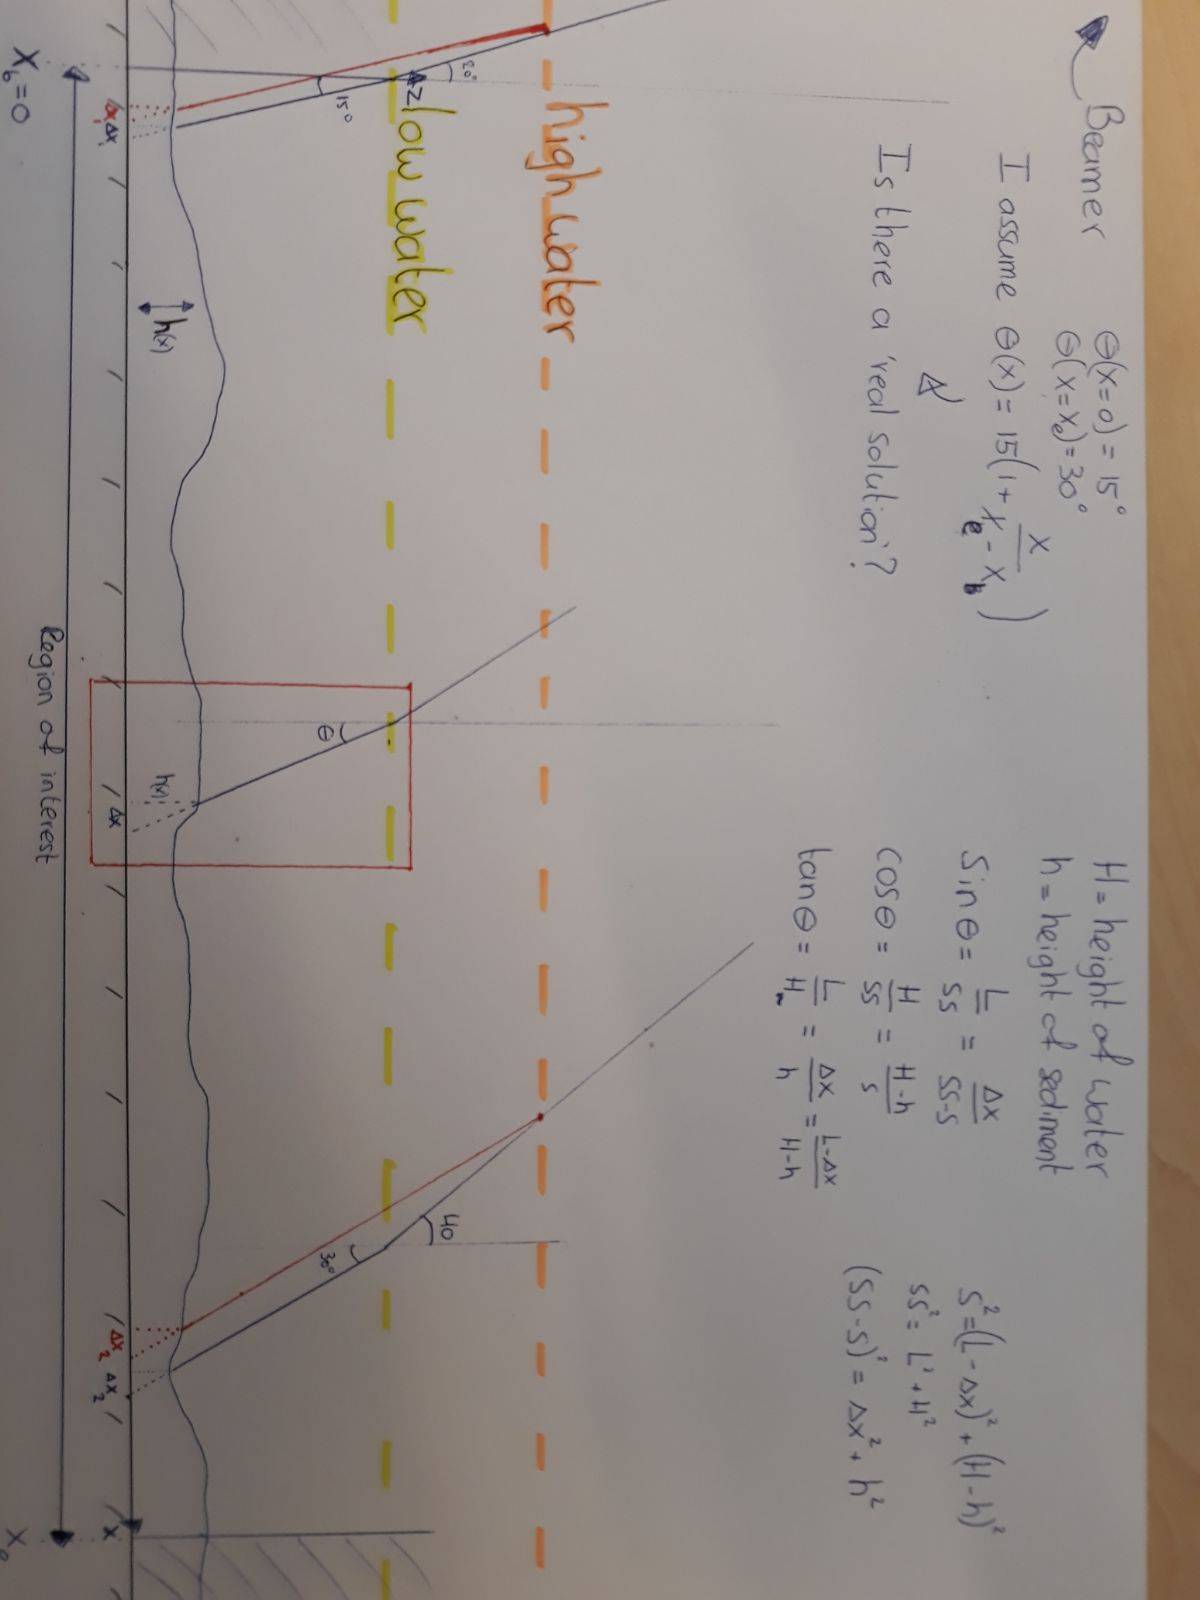 Beamer
θ(x=0) = 15°
θ(x=xe) = 30°
I assume θ(x) = 15(1 + x/(xe - xb))
Is there a 'real solution'?
H = height of water
h = height of sediment
sinθ = L/SS = Δx/SS-S
cosθ = H/SS = H-h/S
tanθ = L/H = Δx/h = L-Δx/H-h
S² = (L-Δx)² + (H-h)²
SS² = L² + H²
(SS-S)² = Δx² + h²
high water
low water
20°
z
15°
θ
40
30°
h(x)
h(x)
Δx₁
Δx₁
Δx
Δx₂
Δx₂
x
Region of interest
Xb = 0
Xe